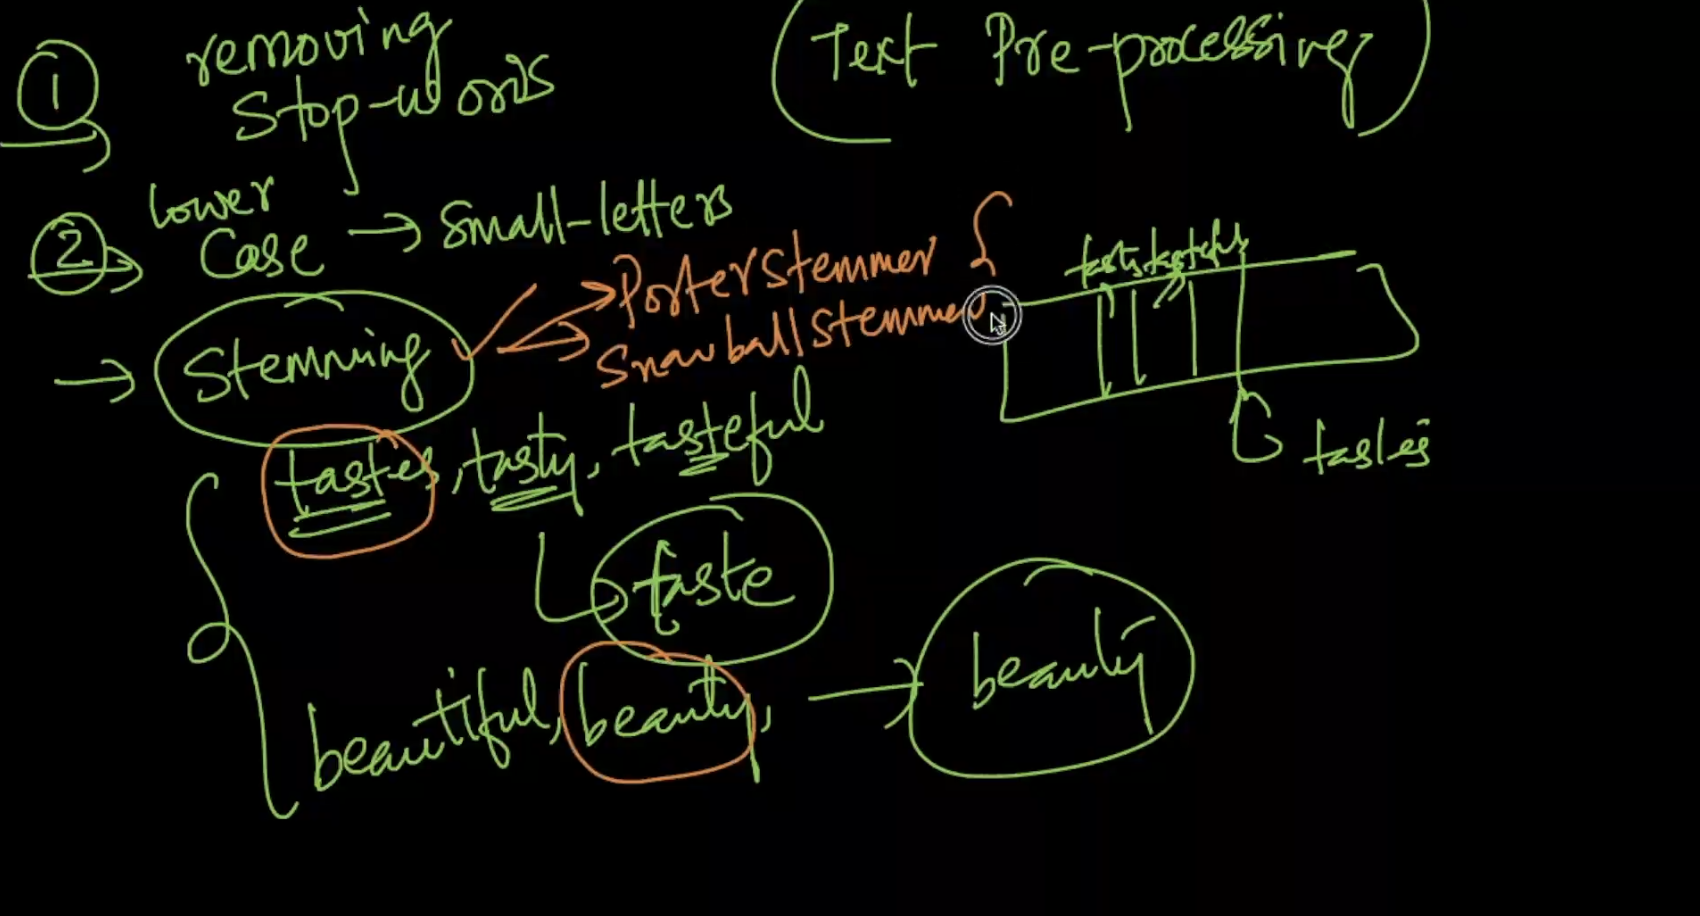 Text Pre-processing
1 removing
Stop-words
2 lower
Case → small-letters
→ Stemming
Porterstemmer
Snowballstemmer
tastes, tasty, tasteful
taste
beautiful, beauty, → beauty
tasty tasteful
tastes